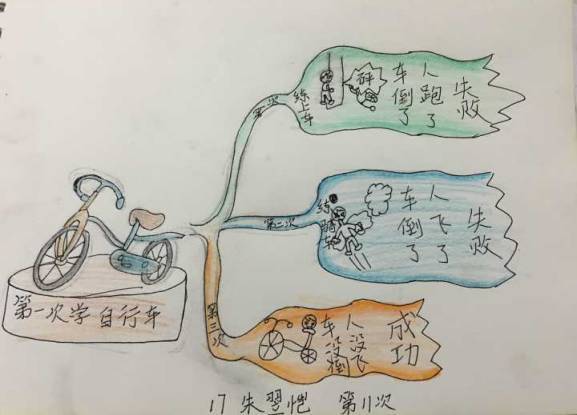 第一次
练上车
砰
车倒了
人跑了
失败
第二次
练骑车
车倒了
人飞了
失败
第一次学自行车
第三次
车没倒
人没飞
成功
17 朱翌恺 第11次